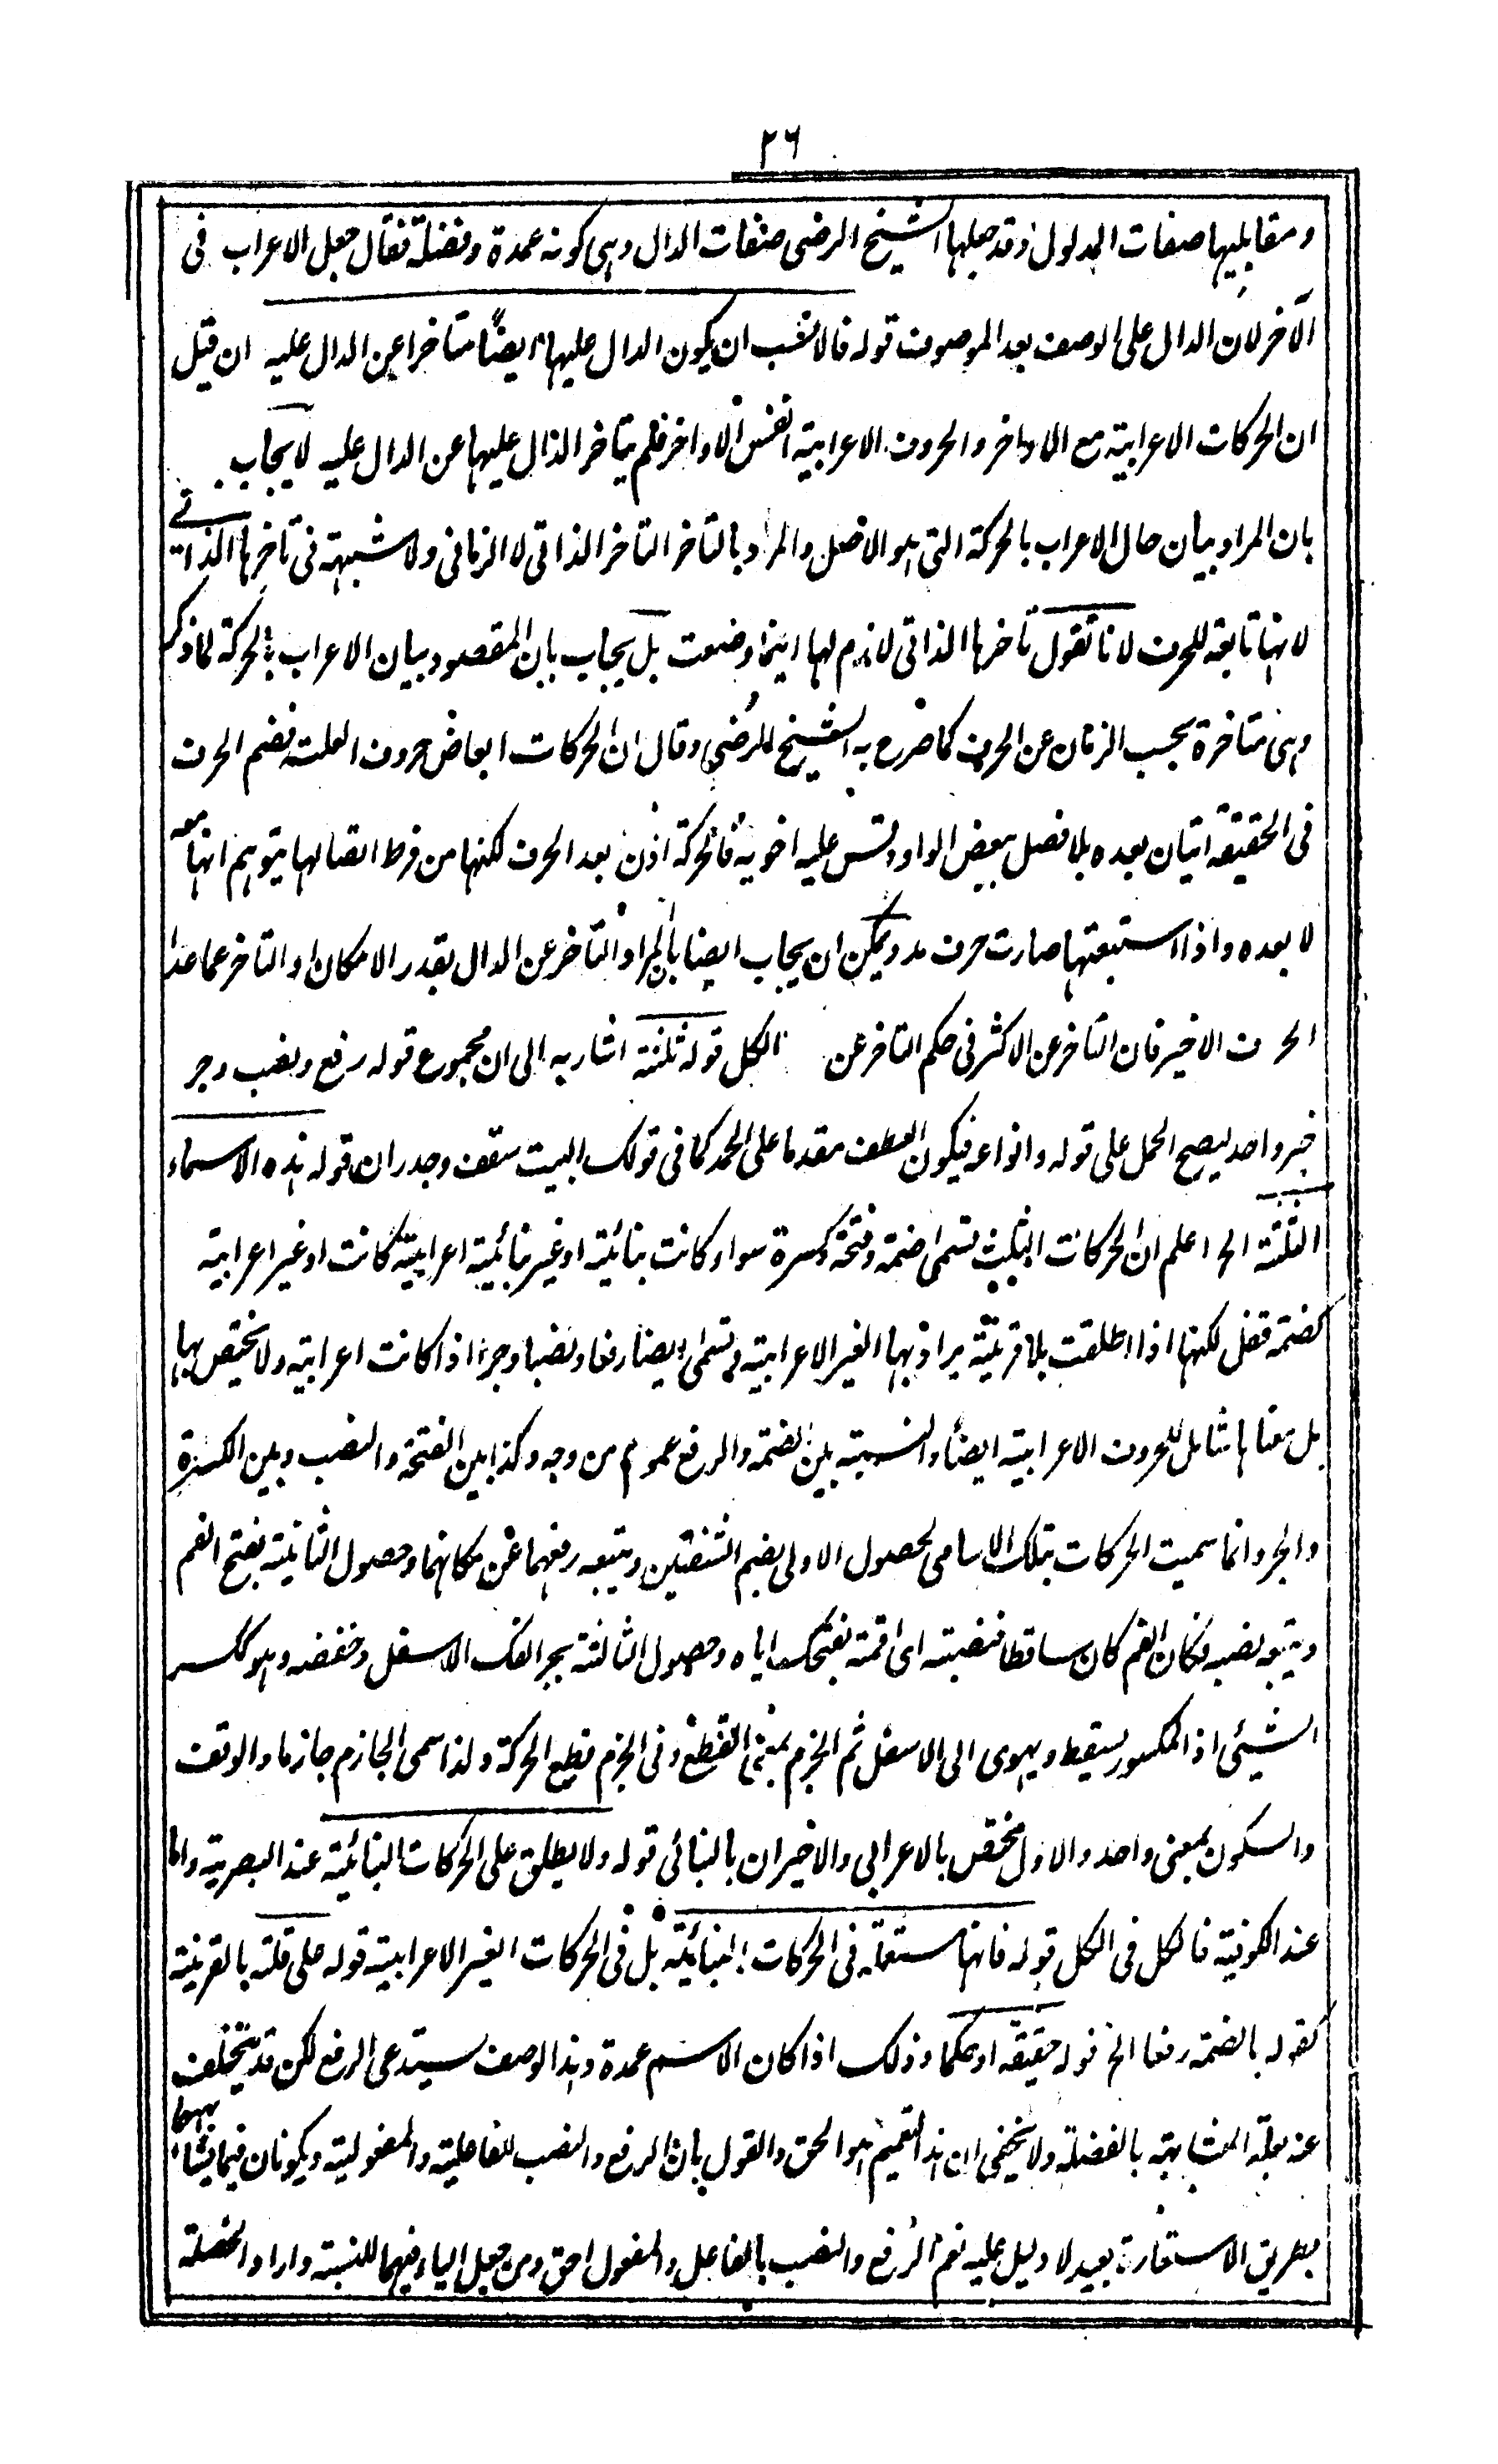 ٢٦
ومقابليها صفات المدلول وقد جعلها الشيخ الرضى صفات الدال وهى كونه عمدة وفضلة فقال جعل الاعراب فى
الآخر لان الدال على الوصف بعد الموصوف قوله فالانسب ان يكون الدال عليها ايضًا متأخرا عن الدال عليه ان قيل
ان الحركات الاعرابية مع الاواخر والحروف الاعرابية انفس الاواخر فلم يتأخر الدال عليها عن الدال عليه لا يجاب
بان المراد بيان حال الاعراب بالحركة التى هو الاصل والمراد بالتأخر التأخر الذاتى لا الزمانى ولا شبهة فى تأخرها الذاتى
لانها تابعة للحرف لانا نقول تأخرها الذاتى لازم لها اينما وضعت بل يجاب بان المقصود بيان الاعراب بالحركة كما ذكر
وهى متأخرة بحسب الزمان عن الحرف كما صرح به الشيخ الرضى وقال ان الحركات ابعاض حروف العلة فضم الحرف
فى الحقيقة اتيان بعده بلا فصل ببعض الواو وقس عليه اخويه فالحركة اذن بعد الحرف لكنها من فرط اتصالها يتوهم انها معه
لا بعده واذا استتبعتها صارت حرف مد ويمكن ان يجاب ايضا بان المراد التأخر عن الدال بقدر الامكان او التأخر عما عدا
الحرف الاخير فان التأخر عن الاكثر فى حكم التأخر عن الكل قوله ثلثة اشار به الى ان مجموع قوله رفع ونصب وجر
خبر واحد ليصح الحمل على قوله وانواعه فيكون العطف مقدما على الحمد كما فى قولك البيت سقف وجدران قوله هذه الاسماء
الثلثة الخ اعلم ان الحركات الثلث تسمى ضمة وفتحة وكسرة سواء كانت بنائية او غير بنائية اعرابية كانت او غير اعرابية
كضمة قفل لكنها اذا اطلقت بلا قرينة يراد بها الغير الاعرابية وتسمى ايضا رفعا ونصبا وجرا اذا كانت اعرابية ولا يختص بها
بل معناها شامل للحروف الاعرابية ايضا والنسبة بين الضمة والرفع عموم من وجه وكذا بين الفتحة والنصب وبين الكسرة
والجر وانما سميت الحركات بتلك الاسامى لحصول الاولى بضم الشفتين ويتبعه رفعهما عن مكانهما وحصول الثانية بفتح الفم
ويتبعه نصبه فكان الفم كان ساقطا فنصبته اى اقمته بفتحك اياه وحصول الثالثة بجر الفك الاسفل وخفضه وهو ككسر
الشيئ اذ المكسور يسقط ويهوى الى الاسفل ثم الجزم بمعنى القطع وفى الجزم قطع الحركة ولذا سمى الجازم جازما والوقف
والسكون بمعنى واحد والاول مختص بالاعرابى والاخيران بالبنائى قوله ولا يطلق على الحركات البنائية عند البصرية واما
عند الكوفية فالكل فى الكل قوله فانها مستعملة فى الحركات البنائية بل فى الحركات الغير الاعرابية قوله على قلة بالقرينة
كقوله بالضمة رفعا الخ قوله حقيقة او حكما وذلك اذا كان الاسم عمدة وهذا الوصف يستدعى الرفع لكن قد يتخلف
عنه بعلة المشابهة بالفضلة ولا يخفى ان هذا التعميم هو الحق والقول بان الرفع والنصب للفاعلية والمفعولية ويكونان فيما يشابههما
بطريق الاستعارة بعيد لا دليل عليه نعم الرفع والنصب بالفاعل والمفعول احق ومن جعل الياء فيهما للنسبة واراد الخصلة